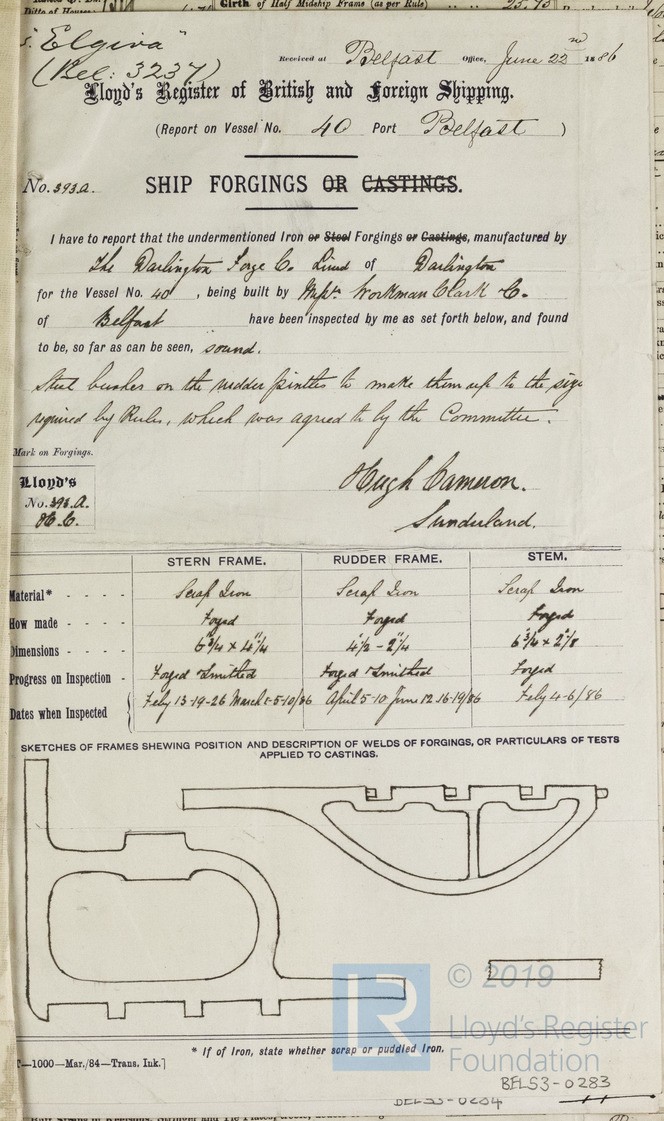 Girth of Half Midship Frame (as per Rule)
S. "Elgiva"
(Bel: 3237)
Received at Belfast Office, June 22nd 1886
Lloyd's Register of British and Foreign Shipping.
(Report on Vessel No. 40 Port Belfast )
No. 393.a.
SHIP FORGINGS OR CASTINGS.
I have to report that the undermentioned Iron or Steel Forgings or Castings, manufactured by
The Darlington Forge Co. Limd of Darlington
for the Vessel No. 40 , being built by Messrs. Workman Clark & Co.
of Belfast have been inspected by me as set forth below, and found
to be, so far as can be seen, sound.
Steel bushes on the rudder pintles to make them up to the size
required by Rules, which was agreed to by the Committee.
Mark on Forgings.
Lloyd's
No. 393.A.
H.C.
Hugh Cameron.
Sunderland.
STERN FRAME. RUDDER FRAME. STEM.
Material* - - - - Scrap Iron Scrap Iron Scrap Iron
How made - - - - Forged Forged Forged
Dimensions - - - - 6 3/4 x 4 1/4 4 1/2 - 2 1/4 6 3/4 x 2 1/8
Progress on Inspection - Forged & Smithed Forged & Smithed Forged
Dates when Inspected Feby 13-19-26 March 1-5-10/86 April 5-10 June 12-16-19/86 Feby 4-6/86
SKETCHES OF FRAMES SHEWING POSITION AND DESCRIPTION OF WELDS OF FORGINGS, OR PARTICULARS OF TESTS
APPLIED TO CASTINGS.
LR
© 2019
Lloyd's Register
Foundation
* If of Iron, state whether scrap or puddled Iron.
T—1000—Mar./84—Trans. Ink.]
BELS3-0283
BELS3-0284